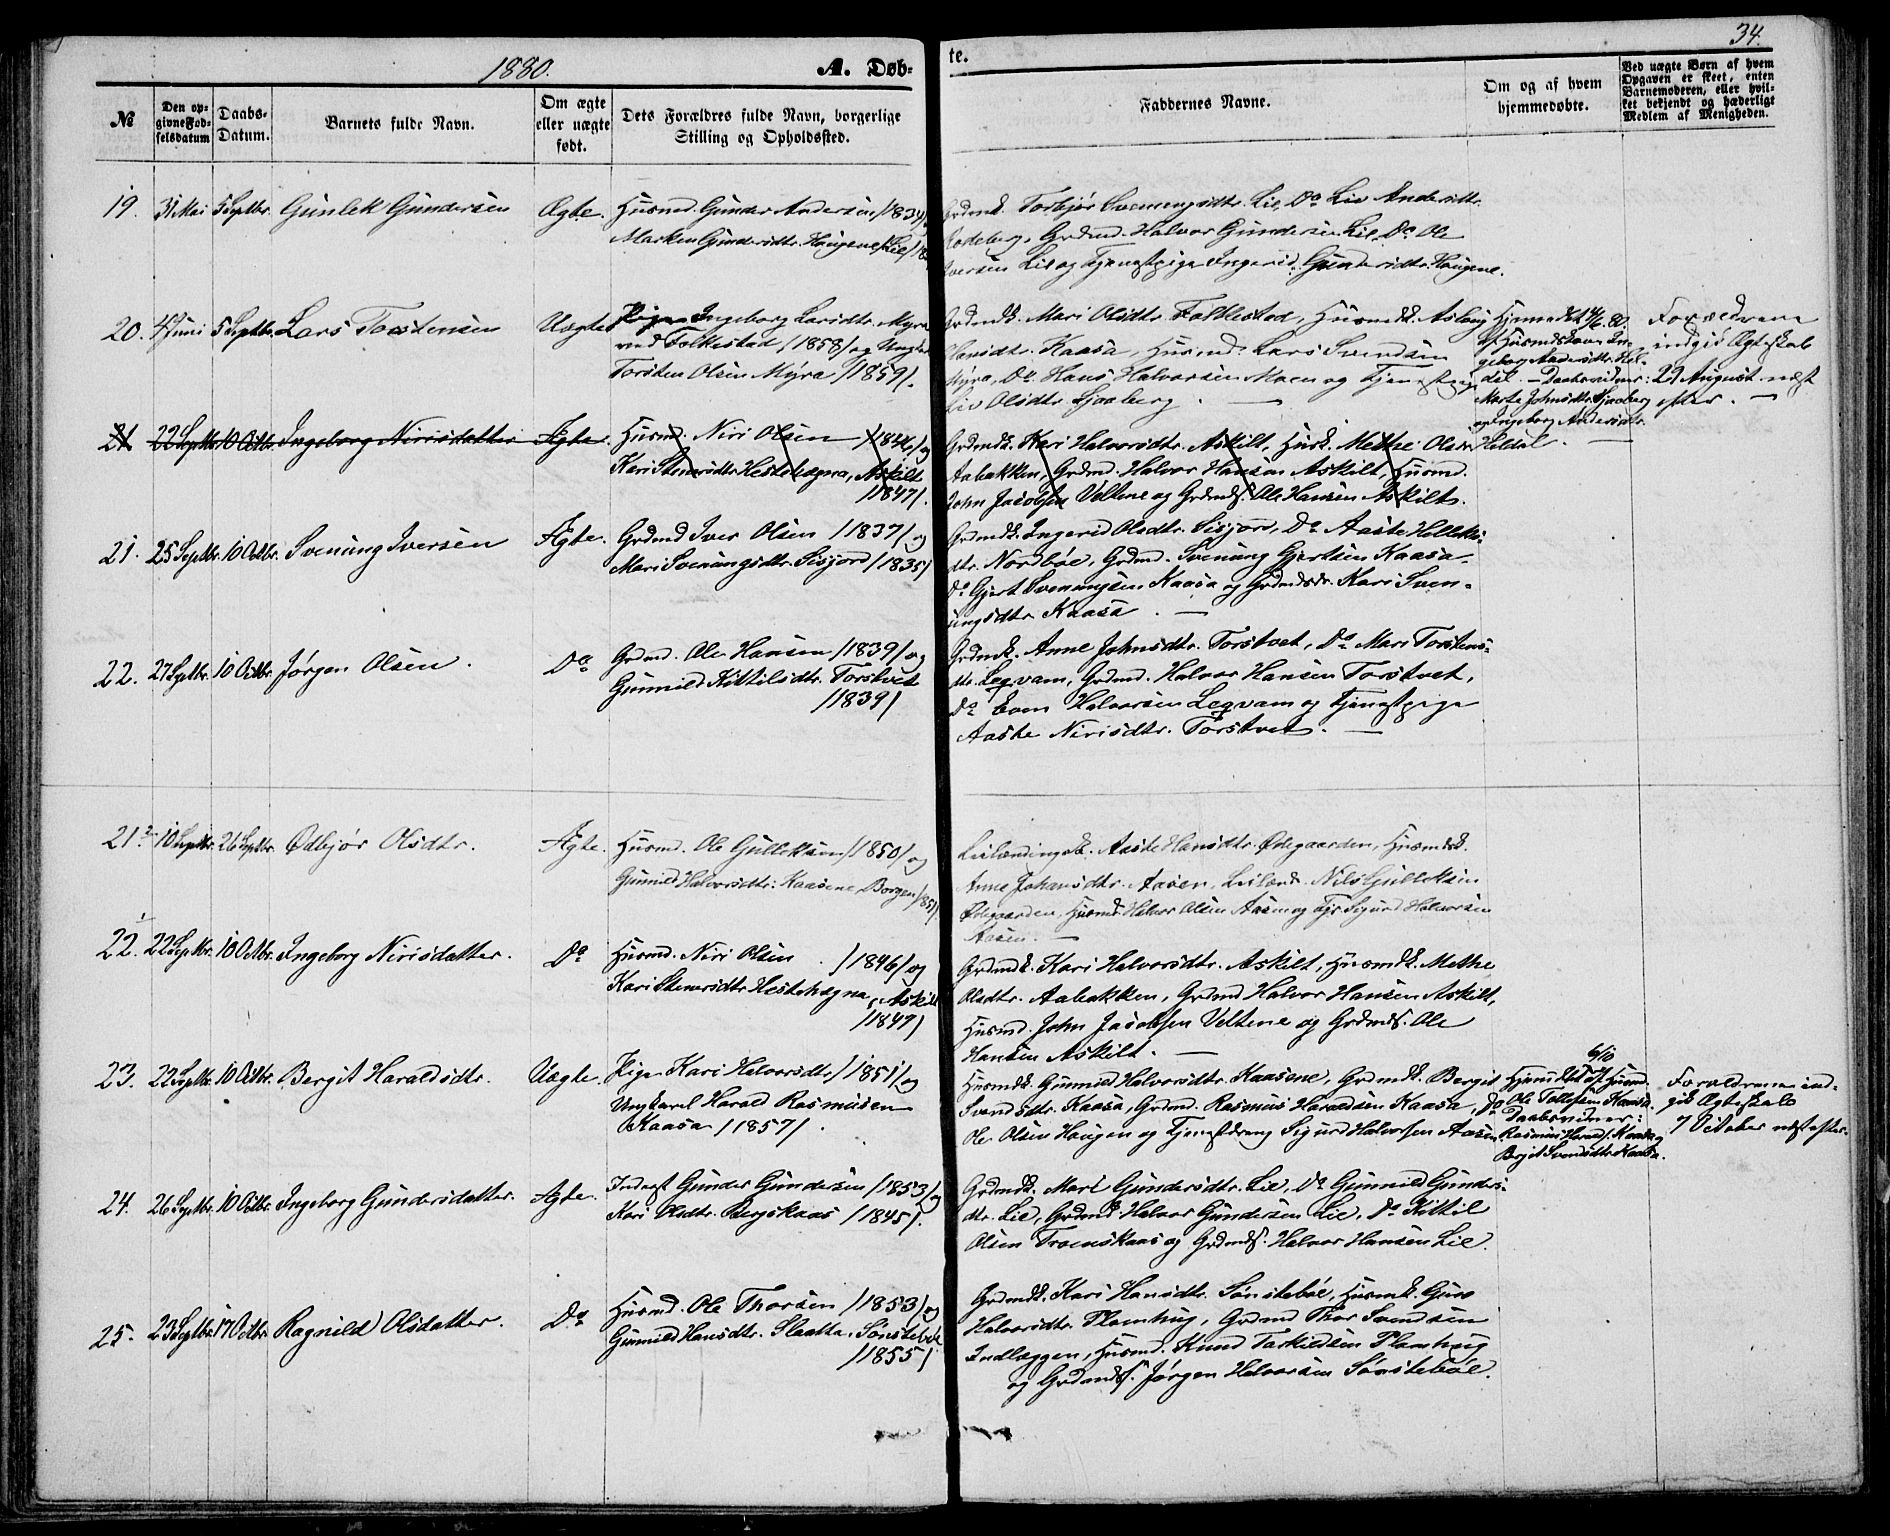 1880.
A. Døb-
te.
34.
№
Den op-
givne Fød-
selsdatum
Daabs-
Datum.
Barnets fulde Navn.
Om ægte
eller uægte
født.
Dets Forældres fulde Navn, borgerlige
Stilling og Opholdssted.
Faddernes Navne.
Om og af hvem
hjemmedøbte.
Ved uægte Børn af hvem
Opgaven er skeet, enten
Barnemoderen, eller hvil-
ket bekjendt og hæderligt
Medlem af Menigheden.
19. 31 Mai 5 Septbr. Gunlek Gundersen Ægte. Husmd. Gunder Andersen /1834/
Marken Gundersdtr. Haugene, Lie /18
Grdmk. Torbjør Sveningsdtr. Lie, Do Liv Andersdtr.
Rodeberg, Grdmd. Halvor Gundersen Lie, Do Ole
Iversen Lie og Tjenestpige Ingerid Gundersdtr. Haugene.
20. 4 Juni 5 Septbr. Lars Torstensen Uægte Pige Ingeborg Larsdtr. Myra
ved Folkestad /1858/ og Ungkar
Torsten Olsen Myra /1859/.
Grdmk. Mari Olsdtr. Folkestad, Husmdk. Aslaug
Hansdtr. Kaasa, Husmd. Lars Svendsen
Myra, Do. Hans Halvorsen Moen og Tjenestpige
Liv Olsdtr. Sjaaberg. —
Hjemmedbt 4/6. 80.
af Husmdskone In-
geborg Andersdtr. Hel-
dal. — Daabsvidner:
Marte Johnsdtr. Sjaaberg
og Ingeborg Andersdtr.
Heldal. —
Forældrene
indgik Ægteskab
29 August næst
efter. —
21 22 Septbr. 10 Octbr. Ingeborg Nirisdatter Ægte. Husmd. Niri Olsen /1846/ og
Kari Stenersdtr. Hestehagna, Askilt
/1847/.
Grdmdk. Kari Halvorsdtr. Askilt, Husk. Methe Olsdtr
Aabakken, Grdmd. Halvor Hansen Askilt, Husmd.
John Jacobsen Veltene og Grdmds. Ole Hansen Askilt.
21. 25 Septbr. 10 Octbr. Svenung Iversen Ægte. Grdmd Iver Olsen /1837/ og
Mari Svenungsdtr. Sisjord /1835/
Grdmdk. Ingerid Olsdtr. Sisjord, Do Aaste Helleks-
dtr. Nordbøe, Grdmd. Svenung Gjertsen Kaasa.
Do Gjert Svenungsen Kaasa og Grdmdsdr. Kari Sven-
ungsdtr Kaasa. —
22. 27 Septbr. 10 Octbr. Jørgen Olsen. Do Grdmd. Ole Hansen /1839/ og
Gunnild Kittilsdtr. Torstvet
/1839/
Grdmdk. Anne Johnsdtr. Torstvet, Do Mari Torstens-
dtr. Legvam, Grdmd. Halvor Hansen Torstvet,
Do Even Halvorsen Legvam og Tjenestpige
Aaste Nirisdtr. Torstvet. —
21.2 10 Septbr. 26 Septbr. Ødbjør Olsdtr. Ægte. Husmd. Ole Gulleksen /1850/ og
Gunnild Halvorsdtr. Kaasene, Borgen /1851/
Leilændingsk. Aaste Hansdtr. Ødegaarden, Husmdk.
Anne Johansdtr. Aasen, Leilænd. Nils Gulleksen
Ødegaarden, Husmd. Halvor Olsen Aasen og Tjr Sigurd Halvorsen
Aasen. —
22. 22 Septbr. 10 Octbr. Ingeborg Nirisdatter. Do Husmd. Niri Olsen. /1846/ og
Kari Stenersdtr. Hestehagna, Askilt
/1847/
Grdmdk. Kari Halvorsdtr. Askilt, Husmdk. Methe
Olsdtr. Aabakken, Grdmd Halvor Hansen Askilt,
Husmd. John Jacobsen Veltene og Grdmds. Ole
Hansen Askilt. —
23. 22 Septbr. 10 Octbr. Bergit Haraldsdtr. Uægte. Pige Kari Halvorsdtr. /1851/ og
Ungkarl Harald Rasmusen
Kaasa /1857/.
Husmdk. Gunnild Halvorsdtr. Kaasene, Grdmdk. Bergit
Svendsdtr. Kaasa, Grdmd. Rasmus Haraldsen Kaasa, Do
Ole Olsen Haugen og Tjenestdreng Sigurd Halvorsen Aasen
6/10
Hjemmedbt af Husmd.
Ole Tollefsen Kaasa.
Daabsvidner:
Rasmus Haralds. Kaasa og
Bergit Svendsdtr Kaasa.
Forældrene ind-
gik Ægteskab
7 October næst efter.
24. 26 Septbr. 10 Octbr. Ingeborg Gundersdatter. Ægte. Inderst Gunder Gundersen /1853/ og
Kari Olsdtr. Bergskaas /1845/.
Grdmdk. Mari Gundersdtr. Lie, Do Gunnild Gunders-
dtr. Lie, Grdmd. Halvor Gundersen Lie, Do Kittil
Olsen Troenskaas og Grdmds. Halvor Hansen Lie.
25. 23 Septbr. 17 Octbr. Ragnild Olsdatter. Do Husmd. Ole Thorsen /1853/ og
Gunnild Hansdtr. Slaatta, Sønstebøe
/1855/
Grdmdk. Kari Hansdtr. Sønstebøe, Husmdk. Guro
Halvorsdtr. Plomhug, Grdmd Thor Svendsen
Indlæggen, Husmd. Knud Tarkildsen Plomhug
og Grdmds. Jørgen Halvorsen Sønstebøe.